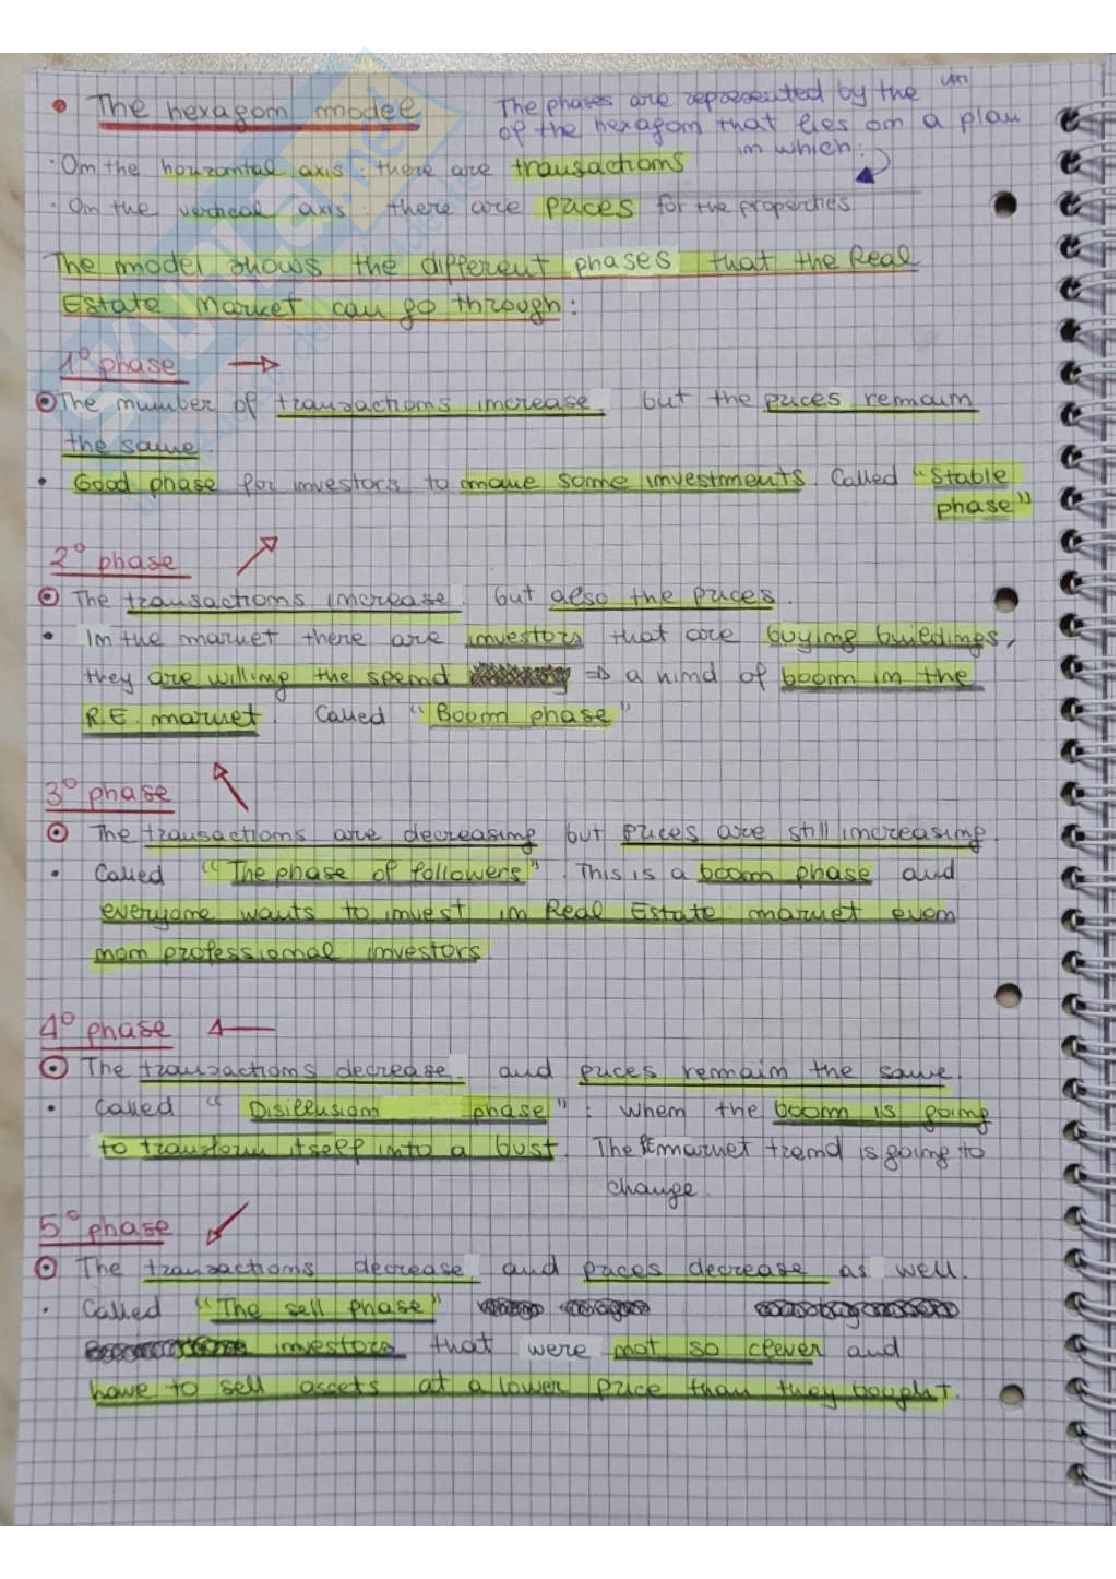 • The hexagon model
The phases are represented by the
of the hexagon that lies on a plan
in which:
· On the horizontal axis: there are transactions
· On the vertical axis: there are prices for the properties.
The model shows the different phases that the Real
Estate Market can go through:
1° phase →
The number of transactions increase, but the prices remain
the same.
• Good phase for investors to make some investments. Called "Stable
phase"
2° phase ↗
The transactions increase, but also the prices.
• In the market there are investors that are buying buildings,
they are willing the spend ⇒ a kind of boom in the
R.E. market. Called "Boom phase"
3° phase ↖
The transactions are decreasing but prices are still increasing.
• Called "The phase of followers". This is a boom phase and
everyone wants to invest in Real Estate market even
non professional investors.
4° phase ←
The transactions decrease, and prices remain the same.
• Called "Disillusion phase": when the boom is going
to transform itself into a bust. The market trend is going to
change.
5° phase ↙
The transactions decrease, and prices decrease as well.
• Called "The sell phase"
investors that were not so clever and
have to sell assets at a lower price than they bought.